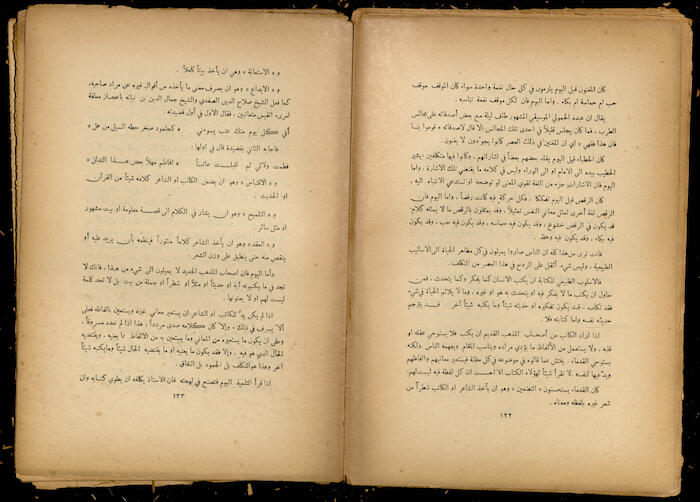 كان المغنون قبل اليوم يلزمون في كل حال نغمة واحدة سواء كان الموقف موقف
حب ام حماسة ام بكاء . واما اليوم فان لكل موقف نغمة تناسبه .
يقال ان عبده الحمولي الموسيقي المشهور طاف ليلة مع بعض أصدقائه على مجالس
الطرب ، فما كان يجلس قليلاً في احدى تلك المجالس الا قال لاصدقائه « قوموا بنا
فان هذا فقي » اي ان المغنين في ذلك العصر كانوا يجودون لا يغنون .
كان الخطباء قبل اليوم يقلد بعضهم بعضاً في اشاراتهم ، وكانوا فيها متكلفين يشير
الخطيب بيده الى الامام او الى الوراء، وليس في كلامه ما يقتضي تلك الاشارة . واما
اليوم فان الاشارات جزء من اللغة تقوي المعنى او توضحه او تستدعي الانتباه اليه .
كان الرقص قبل اليوم تفككا ، فكل حركة فيه كانت رقصاً ، واما اليوم فان
الرقص لغة أخرى تمثل معاني النفس تمثيلاً ، وقد يمثلون بالرقص ما لا يمثله كلام؛
قد يكون في الرقص خشوع ، وقد يكون فيه حماسة ، وقد يكون فيه حب ، وقد يكون
فيه بكاء ، وقد يكون فيه وعظ .
فانت ترى من هذا كله ان الناس صاروا يميلون في كل مظاهر الحياة الى الاساليب
الطبيعية ، وليس شيء أثقل على الروح في هذا العصر من التكلف .
فالاسلوب الطبيعي للكتابة ان يكتب الانسان كما يفكر وكما يتحدث ، فمن
حاول ان يكتب ما لا يفكر فيه او يتحدث به هو او غيره ، وما لا يلائم الحياة في شيء
فقد تكلف . فقد يكون تفكيره او حديثه شيئاً وما يكتبه شيئاً آخر . فقد يترجم
حديثه نفسه واما كتابته فلا .
اذا اراد الكاتب من أصحاب المذهب القديم ان يكتب فلا يستوحي عقله او
قلبه ، ولا يستعمل من الألفاظ ما يؤدي مراده ويناسب المقام ويفهمه الناس . ولكنه
يستوحي القدماء . يفتش عما قالوه في موضوعه في كل مظنة فيستعير معانيهم والفاظهم
ويدعيها لنفسه . لا تقرأ شيئاً لهؤلاء الكتاب الا احست ان كل لفظة فيه ليست لهم .
كان القدماء يستحسنون « التضمين » وهو ان يأخذ الشاعر او الكاتب شطراً من
شعر غيره بلفظه ومعناه .
١٣٢
و « الاستعانة » وهي ان يأخذ بيتاً كاملاً .
و « الايداع » وهو ان يصرف معنى ما يأخذه من أقوال غيره عن مراد صاحبه،
كما فعل الشيخ صلاح الدين الصفدي والشيخ جمال الدين بن نباته باعجاز معلقة
امرىء القيس متعاتبين . فقال الاول في أول قصيدته .
أفي كل يوم منك عتب يسوءني * كجلمود صخر حطه السيل من عل *
فاجابه الثاني بقصيدة قال في اولها :
فطمت ولائي ثم اقبلت عاتباً * افاطم مهلاً بعض هذا التدلل *
و « الاقتباس » وهو ان يضمن الكاتب او الشاعر كلامه شيئاً من القرآن
او الحديث .
و « التلميح » وهو ان يشار في الكلام الى قصة معلومة او بيت مشهور
او مثل سائر .
و « العقد » وهو ان يأخذ الشاعر كلاماً منثوراً فينظمه بأن يزيد عليه أو
ينقص منه حتى ينطبق على وزن الشعر .
وأما اليوم فان اصحاب المذهب الجديد لا يميلون الى شيء من هذا ، فانك لا
تجد في ما يكتبونه آية او حديثاً او مثلاً أو شطراً او جملة من بيت بل لا تجد كلمة
ليست لهم او لا يعنونها .
اذا لم يكن بد للكاتب او الشاعر ان يستعير معاني غيره ويستعين بالفاظه فعلى
ألا يسرف في ذلك ، وإلا كان كلامه صدى مردداً ، هذا اذا لم نعده مسروقاً ،
وعلى ان يكون ما يستعيره من المعاني وما يستعين به من الالفاظ مما يعنيه ، ويقتضيه
الحال الذي هو فيه . وإلا فقد يكون ما يعنيه او ما يقتضيه الحال شيئاً وما يكتبه شيئاً
آخر وهذا هو التكلف بل الجمود بل النفاق .
اذا قرأ التلميذ اليوم فتصنع في لهجته فان الاستاذ يكلفه ان يطوي كتابه وان
١٣٣